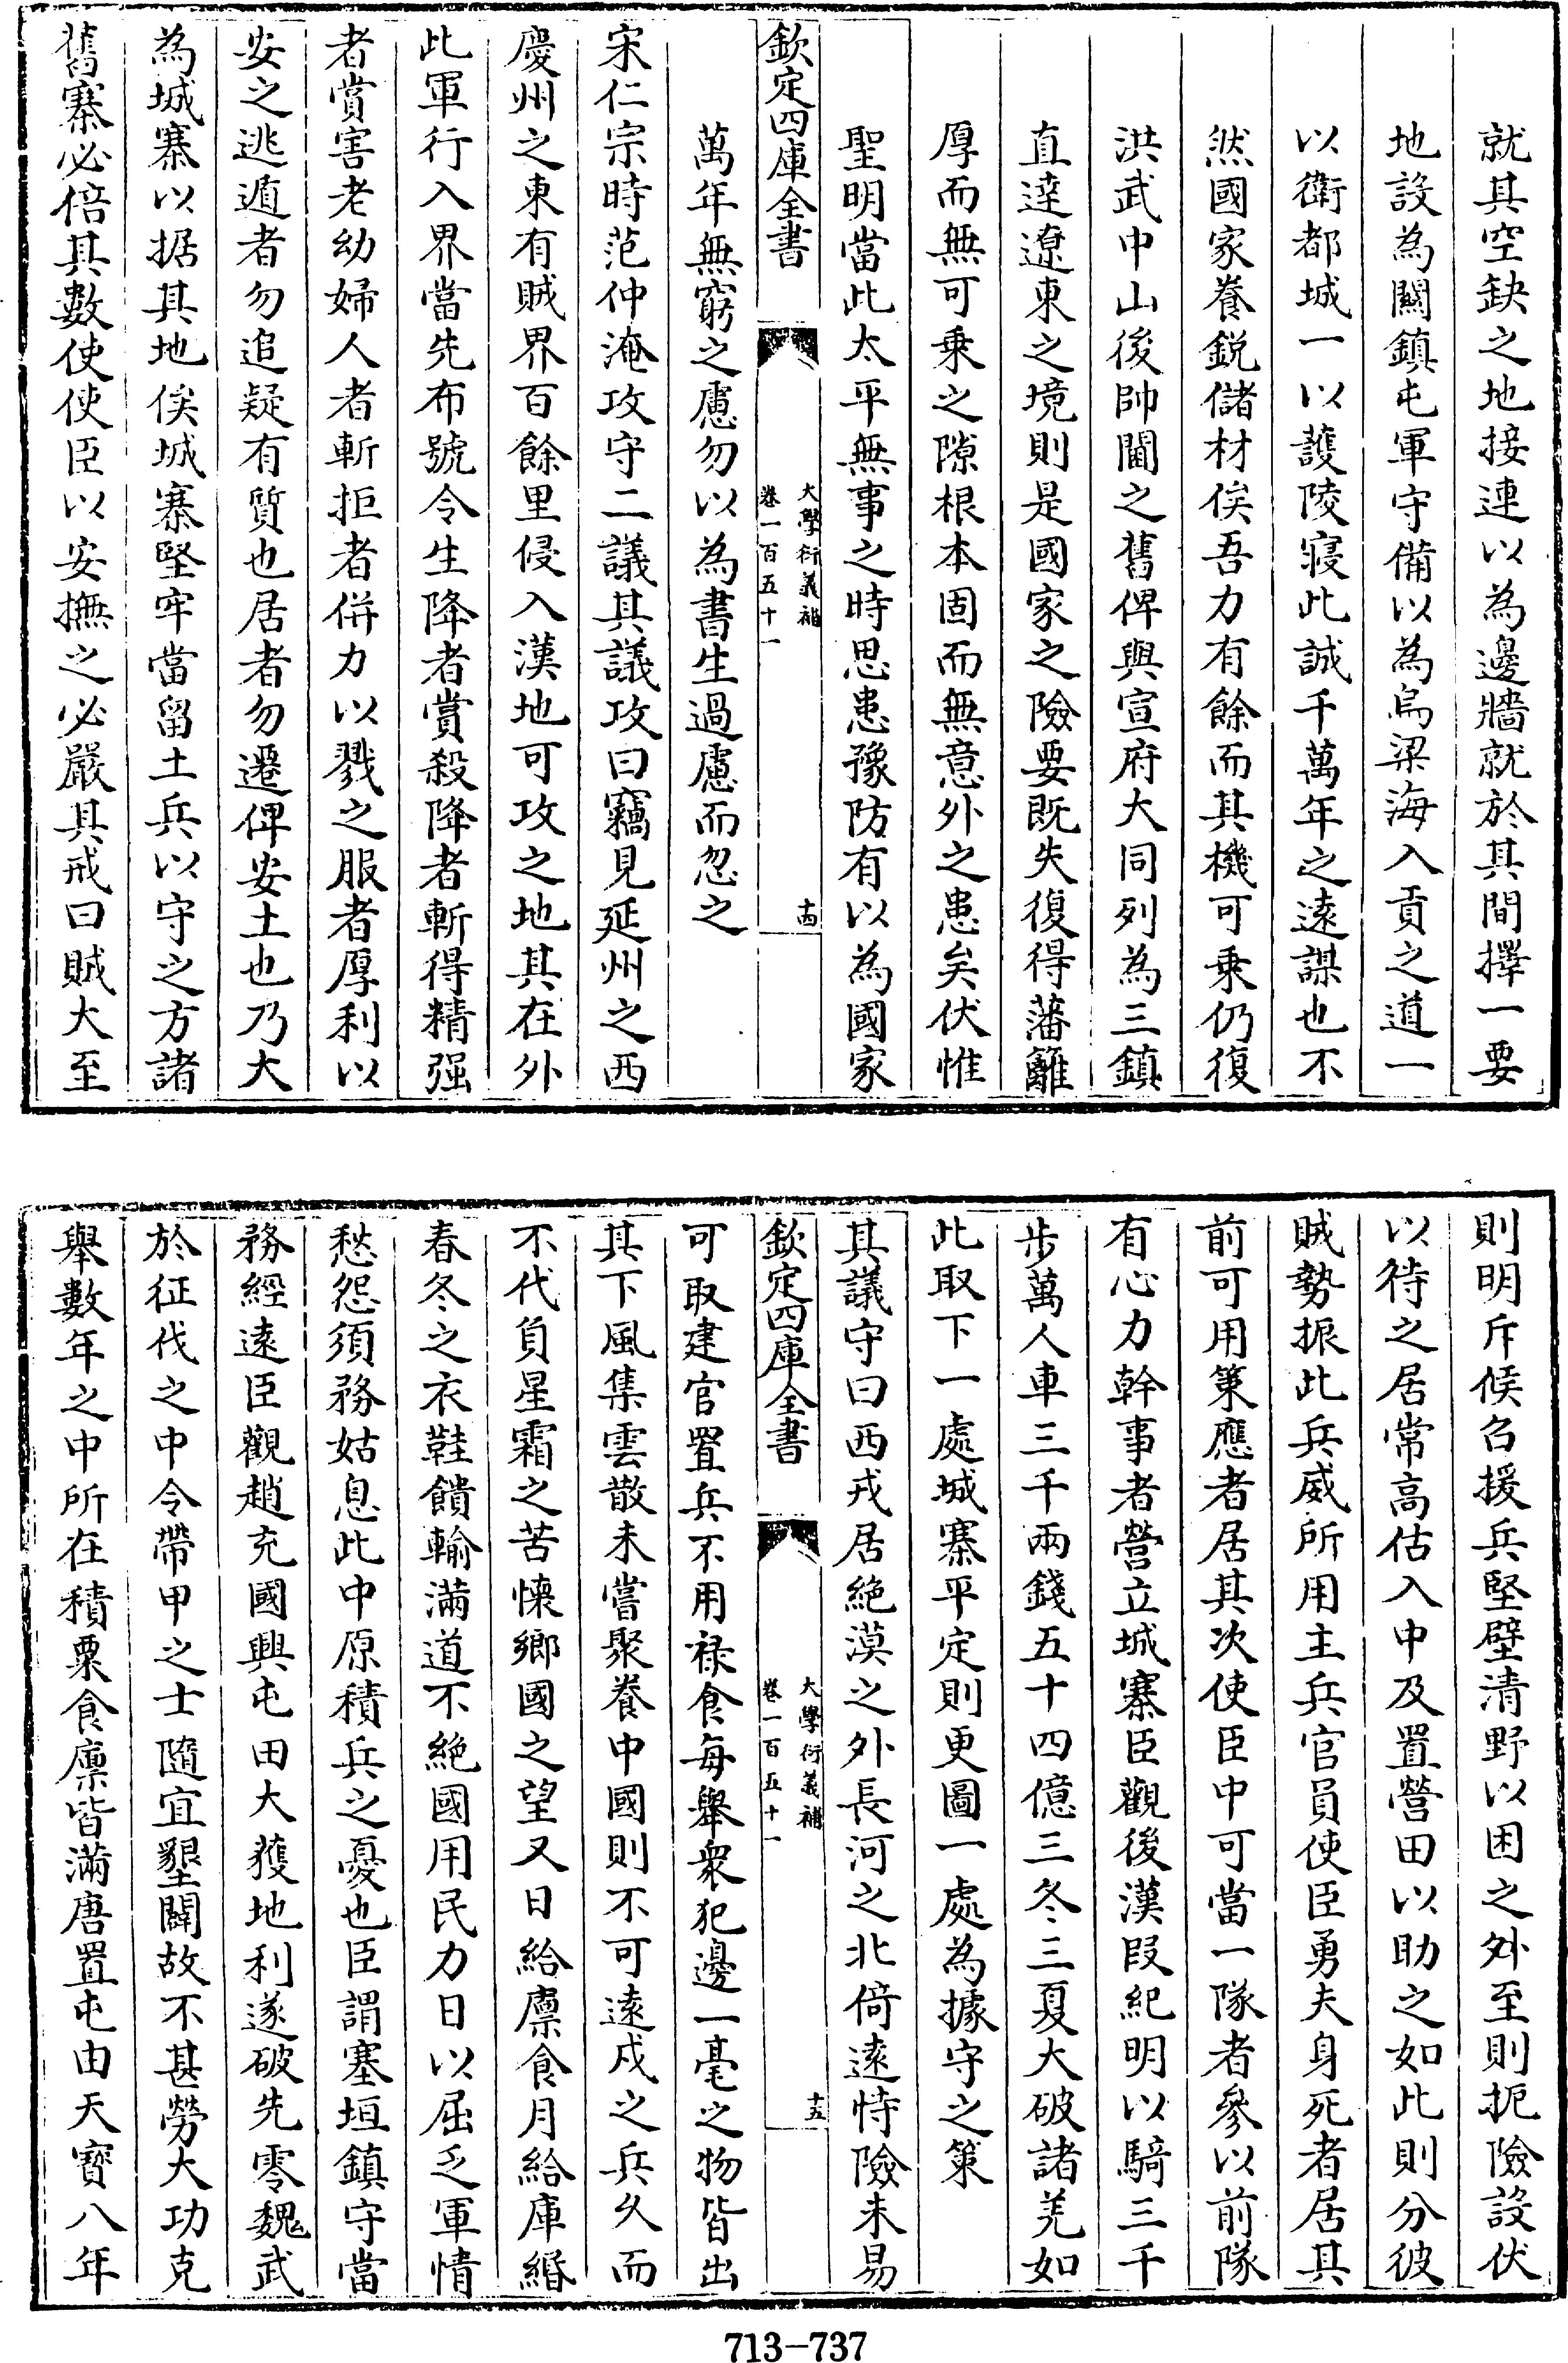 就其空缺之地接連以為邊牆就於其間擇一要
地設為關鎮屯軍守備以為烏梁海入貢之道一
以衛都城一以護陵寢此誠千萬年之遠謀也不
然國家養銳儲材俟吾力有餘而其機可乘仍復
洪武中山後帥閫之舊俾與宣府大同列為三鎮
直達遼東之境則是國家之險要既失復得藩籬
厚而無可乘之隙根本固而無意外之患矣伏惟
聖明當此太平無事之時思患豫防有以為國家
欽定四庫全書
大學衍義補
卷一百五十一
十四
萬年無窮之慮勿以為書生過慮而忽之
宋仁宗時范仲淹攻守二議其議攻曰竊見延州之西
慶州之東有賊界百餘里侵入漢地可攻之地其在外
此軍行入界當先布號令生降者賞殺降者斬得精强
者賞害老幼婦人者斬拒者併力以戮之服者厚利以
安之逃遁者勿追疑有質也居者勿遷俾安土也乃大
為城寨以据其地俟城寨堅牢當留土兵以守之方諸
舊寨必倍其數使使臣以安撫之必嚴其戒曰賊大至
則明斥候召援兵堅壁清野以困之外至則扼險設伏
以待之居常高估入中及置營田以助之如此則分彼
賊勢振此兵威所用主兵官員使臣勇夫身死者居其
前可用策應者居其次使臣中可當一隊者參以前隊
有心力幹事者營立城寨臣觀後漢段紀明以騎三千
步萬人車三千兩錢五十四億三冬三夏大破諸羌如
此取下一處城寨平定則更圖一處為據守之策
其議守曰西戎居絶漠之外長河之北倚遠恃險未易
欽定四庫全書
大學衍義補
卷一百五十一
十五
可取建官置兵不用禄食每舉衆犯邊一毫之物皆出
其下風集雲散未嘗聚養中國則不可遠戍之兵久而
不代負星霜之苦懷鄉國之望又日給廪食月給庫緡
春冬之衣鞋饋輸滿道不絶國用民力日以屈乏軍情
愁怨須務姑息此中原積兵之憂也臣謂塞垣鎮守當
務經遠臣觀趙充國興屯田大獲地利遂破先零魏武
於征伐之中令帶甲之士隨宜墾闢故不甚勞大功克
舉數年之中所在積粟食廪皆滿唐置屯由天寳八年
713-737